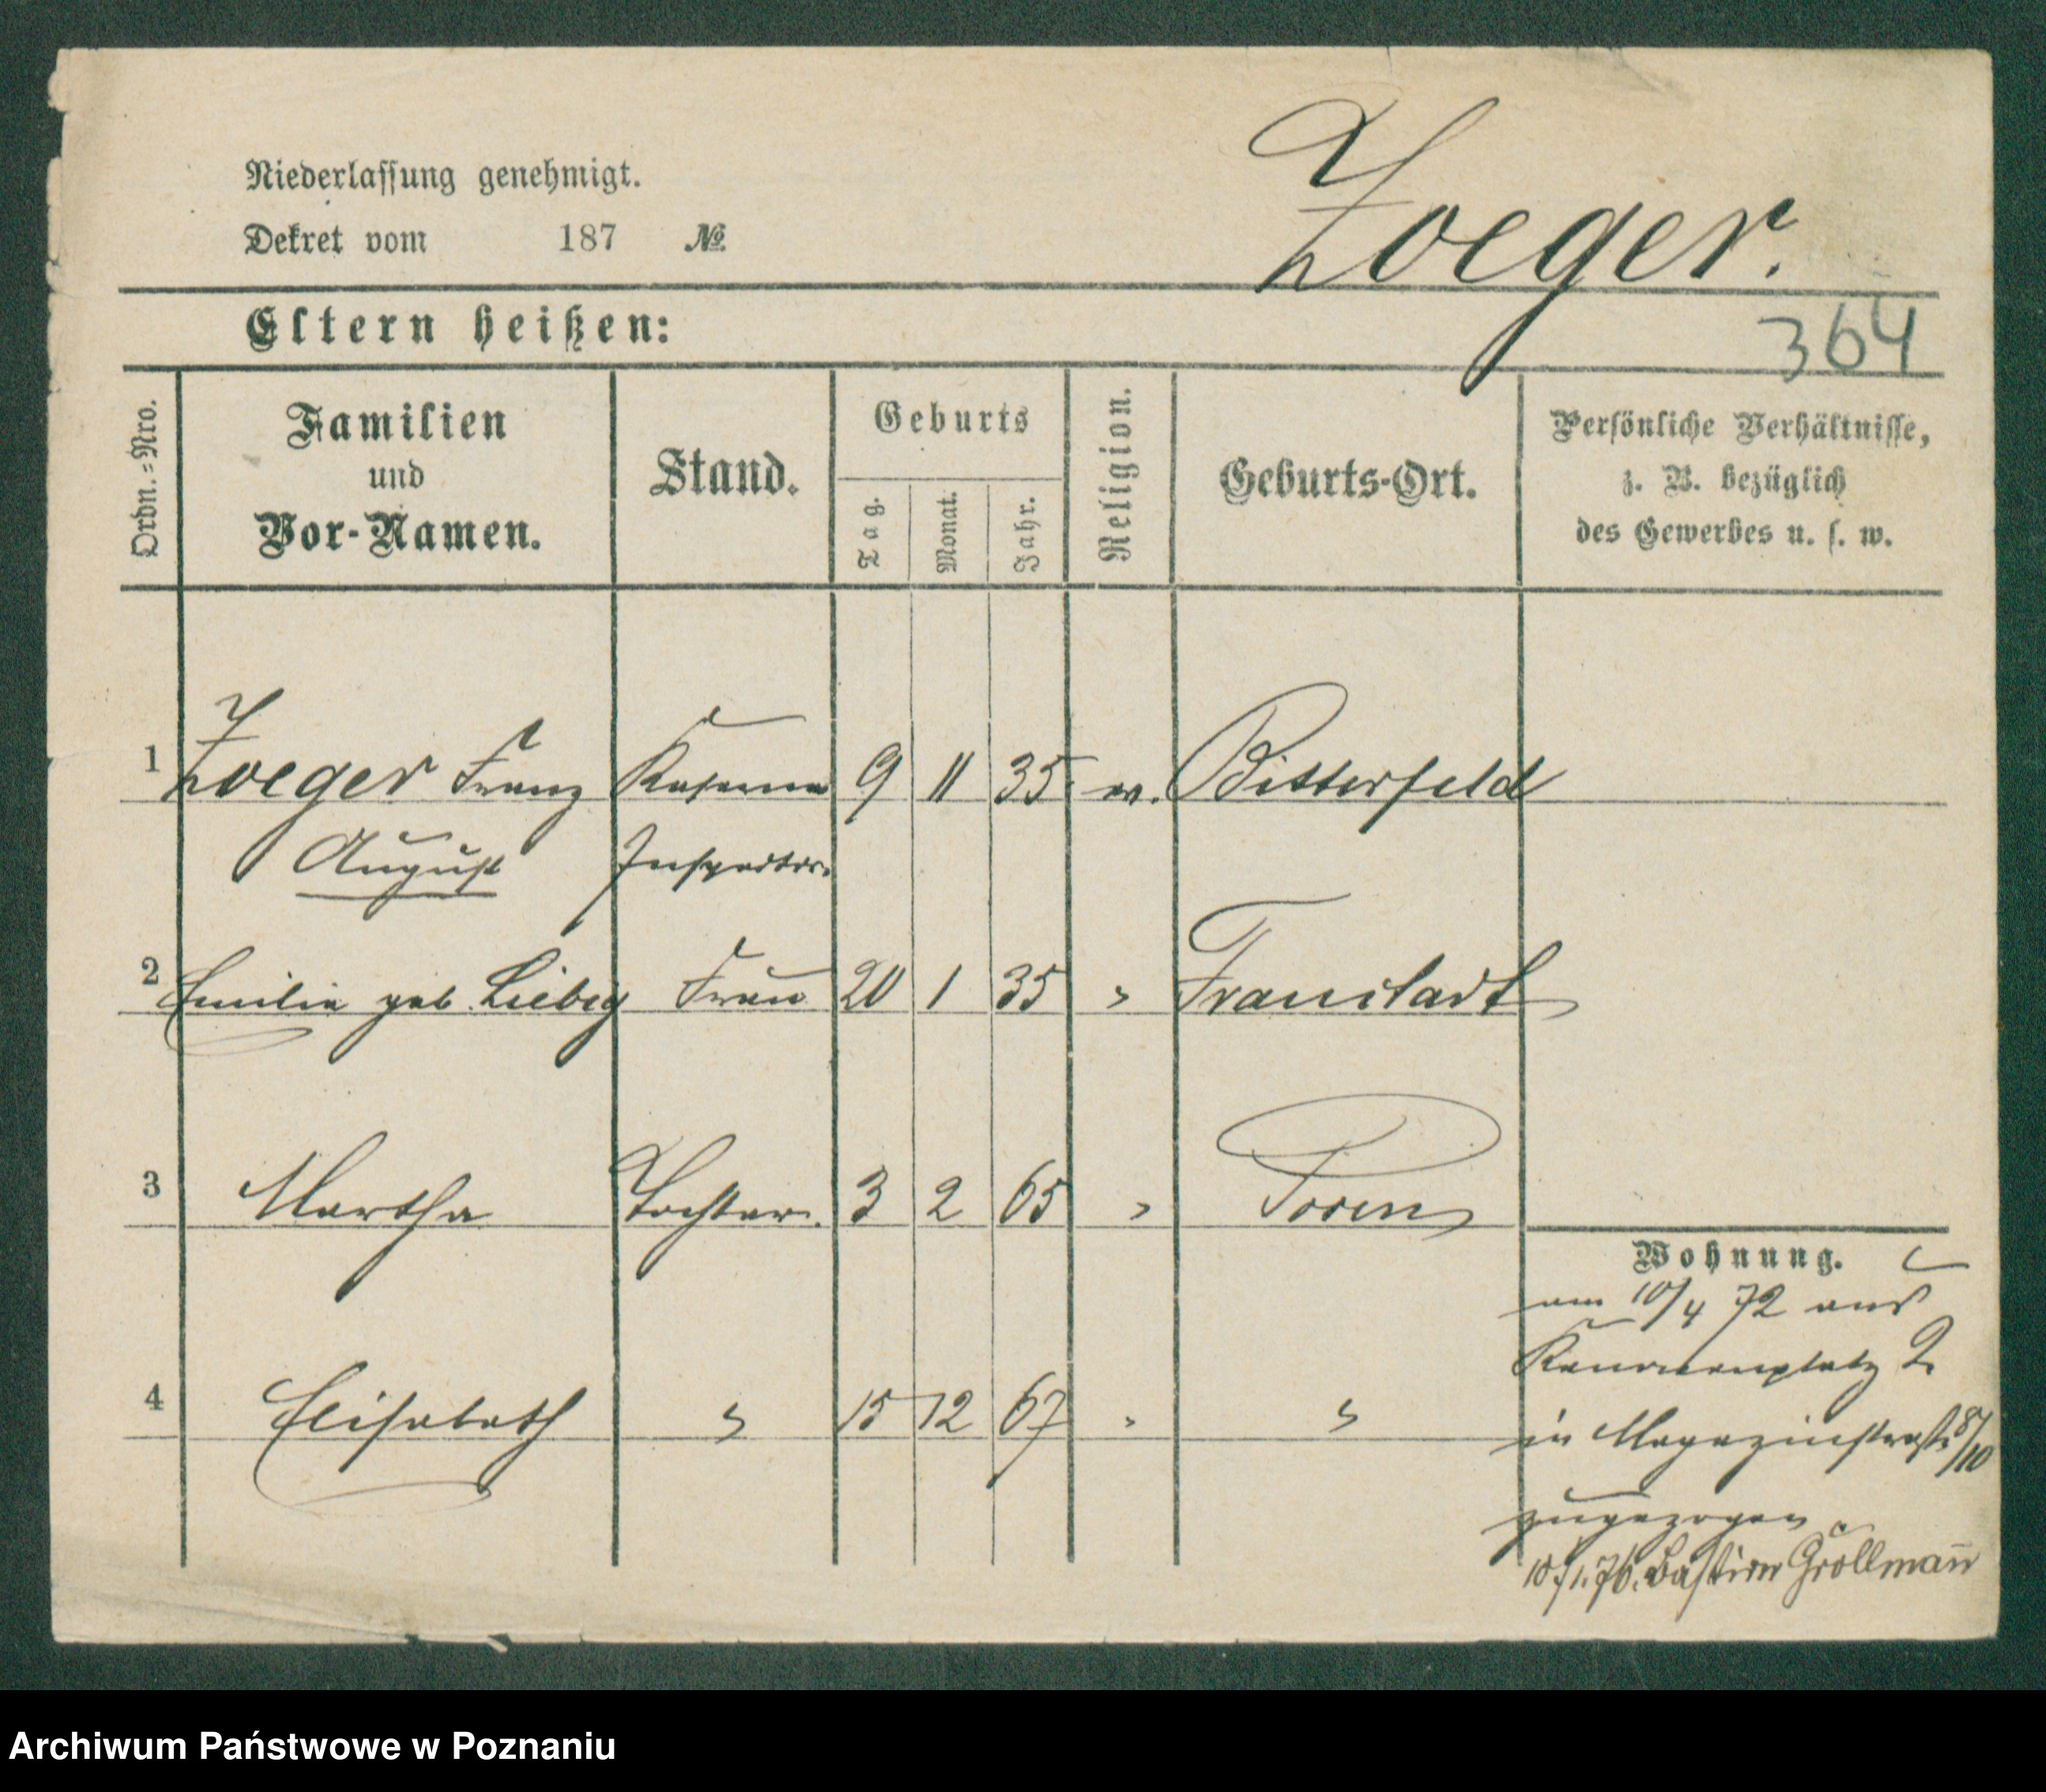 Niederlassung genehmigt.
Dekret vom 187 №
Zoeger.
Eltern heißen:
364
Ordn.=Nro.
Familien
und
Vor-Namen.
Stand.
Geburts
Tag.
Monat.
Jahr.
Religion.
Geburts-Ort.
Persönliche Verhältnisse,
z. B. bezüglich
des Gewerbes u. s. w.
1 Zoeger Franz Kaserne 9 11 35 ev. Bitterfeld
August Inspector.
2 Emilie geb. Liebig Frau 20 1 35 " Fraustadt
3 Martha Tochter. 3 2 65 " Posen
4 Elisabeth " 15 12 67 " "
Wohnung.
am 10/4 72 aus
Kanonenplatz 2
in Magazinstraße 8/10
zugezogen
Grollman̄
Archiwum Państwowe w Poznaniu